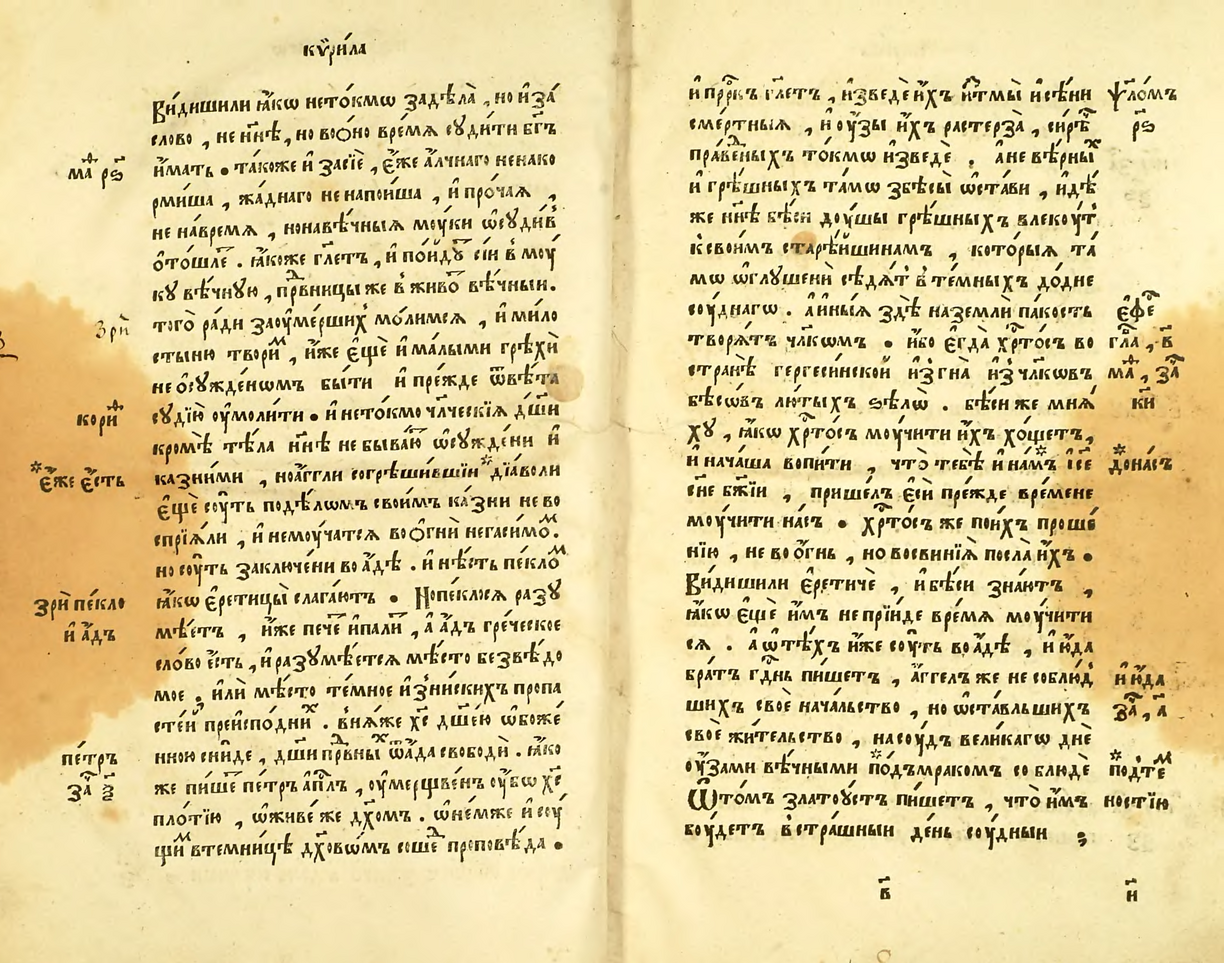 кѵри́ла
Ви́дишили ꙗ҆́кѡ нето́кмѡ задѣ́ла̀ , но и҆за́
сло́во , не нн҃ѣ , но воѻ҆́но вре́мѧ сꙋди́ти бг҃ъ
и҆́мать . та́коже и҆ засїѐ , є҆́же а҆́лчнаго ненако
рми́ша , жа́днаго не напои́ша , и҆ про́чаѧ ,
не на́времѧ , нонавѣ́чныѧ моу́ки ѡ҆сꙋди́в
ѻ҆тошле҃ . ꙗ҆́коже гл҃етъ , и҆ по́йдꙋ сїи в моу́
кꙋ вѣ́чнꙋю , прв҃ницы же в живо вѣ́чныи .
того̀ ра́ди заоу҆ме́рших мо́лимсѧ , и҆ ми́ло
стыню твори́м , и҆́же є҆щѐ и҆ ма́лыми грѣхѝ
не ѻ҆сꙋжде́нѡмъ бы́ти и҆ пре́жде ѿвѣ́та
сꙋдїю̀ оу҆моли́ти . и҆ нето́кмо чл҃ческїѧ дш҃и
кромѣ̀ тѣ́ла нн҃ѣ не быва́ю ѡ҆сꙋжде́ни и҆
ка́зними , ноа҆́гг҃ли согрѣши́вшїи дїа́воли
є҆щѐ сꙋ́ть подѣлѡ́мъ свои́мъ ка́зни не во
спрїѧ́ли , и҆ немоу́чатсѧ во ѻ҆гнѝ негаси́мом .
но сꙋ́ть заключе́ни во а҆́дѣ . и҆ нѣ́сть пе́клом
ꙗ҆́кѡ є҆ретицы̀ слага́ютъ . Нопе́клосѧ разꙋ
мѣ́етъ , и҆́же печѐ и҆пали́ , а҆ а҆́дъ гре́ческое
сло́во є҆́сть , и҆ разꙋмѣ́етсѧ мѣ́сто безвѣ́до
мое , и҆лѝ мѣ́сто те́мное и҆знискихъ пропа
сте́й преиспо́дних . внѧ́же хс҃ дш҃ею ѡ҆боже́
нною сни́де , дш҃и прв҃ных ѿа҆́да свободѝ . ꙗ҆́ко
же пи́ше пе́тръ а҆пл҃ъ , оу҆ме́рщвенъ оу҆́бѡ хс҃
пло́тїю , ѡ҆живе́ же дх҃омъ . ѡ҆не́мже и҆ соу́
щим втемни́цѣ дх҃овѡмъ соше проповѣ́да .
маѳ рѕ҃
зри̑
кори̑ѳ
*є҆́же є҆́сть
зри̑ пе́кло
и҆ а҆́дъ
пе́тръ
за҃ ѯ҃
и҆ прⷪ҇ркъ гл҃етъ , и҆зведѐ и҆́хъ и҆тмы̀ и҆ сѣ́ни
сме́ртныѧ , и҆ оу҆́зы и҆́хъ растерза̀ , си́рѣч
пра́веныхъ то́кмѡ и҆зведѐ . а҆не вѣ́рных
и҆ грѣ́шныхъ та́мѡ збѣ́сы ѡ҆ста́ви , и҆дѣ́
же нн҃ѣ бѣ́си доу́шы грѣ́шныхъ влекоу́т
к свои́мъ старѣ́йшинамъ , кото́рыѧ та́
мѡ ѡ҆глуше́ни сѣдѧ́т в те́мныхъ до́дне
соу́днагѡ . а҆ и҆ны́ѧ здѣ̀ на землѝ па́кость
творѧ́тъ чл҃кѡмъ . и҆́бо є҆гда̀ хрⷭ҇то́съ во
странѣ̀ гергеси́нской и҆згна̀ и҆зчл҃кѡвъ
бѣ́сѡвъ лю́тыхъ ѕѣлѡ̀ . бѣ́си же мнѧ́
хꙋ , ꙗ҆́кѡ хрⷭ҇то́съ моу́чити и҆́хъ хо́щетъ ,
и҆ нача́ша вопи́ти , что̀ тебѣ̀ и҆ на́мъ і҆с҃е
сн҃е бж҃їи , прише́лъ є҆сѝ пре́жде вре́мене
моу́чити на́съ . хрⷭ҇то́съ же пои́хъ проше́
нїю , не во ѻ҆́гнь , но во свинїѧ̀ посла̀ и҆́хъ .
Ви́дишили є҆ретичѐ , и҆ бѣ́си зна́ютъ ,
ꙗ҆́кѡ є҆щѐ и҆́мъ не прїи́де вре́мѧ моу́чити
сѧ . а҆ ѡ҆ тѣ́хъ и҆́же соу́ть во а҆́дѣ , и҆ и҆ю́да
бра́тъ гдⷭ҇нь пи́шетъ , а҆́ггелъ же не соблю́д
шихъ своѐ нача́льство , но ѡ҆ста́вльшихъ
своѐ жи́тельство , на соу́дъ вели́кагѡ днѐ
оу҆́зами вѣ́чными по́дъмракомъ со блюдѐ
Ѡ҆то́мъ златоу́стъ пи́шетъ , что̀ и҆́мъ
боу́детъ в стра́шныи де́нь соу́дныи ;
ѱало́мъ
рѕ҃
є҆фе
гла̑ , в҃
маѳ , за҃
ки҃
*до на́съ
и҆ ю҆́да
за҃ , а҃
*по́дтем
ностїю
в҃
и҃